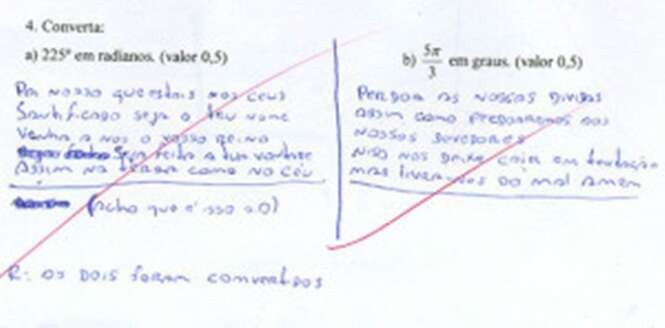 4. Converta:
a) 225º em radianos. (valor 0,5)
Pai nosso que estais nos ceus
Santificado seja o teu nome
Venha a nos o vosso reino
Seja feita a tua vontade
Assim na terra como no céu
(acho que é isso a O)
R: OS DOIS foram convertidos
b) 5π/3 em graus. (valor 0,5)
PERDOA AS NOSSAS DIVIDAS
assim como perdoaremos aos
nossos devedores
não nos deixe cair em tentação
mas livra-nos do mal amem